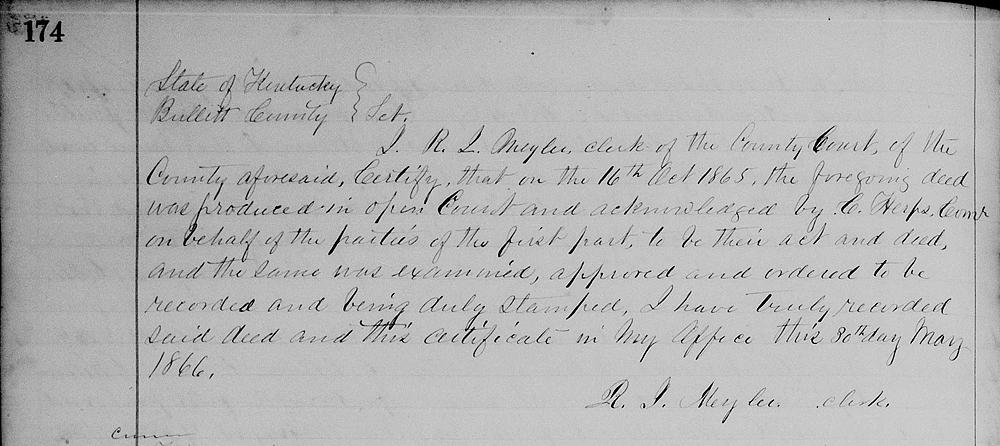 174
State of Kentucky
Bullitt County } Sct.
I. R. J. Meyler, clerk of the County Court, of the
County aforesaid, Certify, that on the 16th Oct 1865, the foregoing deed
was produced in open Court and acknowledged by C. Comr
on behalf of the parties of the first part, to be their act and deed,
and the same was examined, approved and ordered to be
recorded and being duly stamped, I have truly recorded
said deed and this certificate in My Office this 30th day May
1866.
R. J. Meyler. clerk.